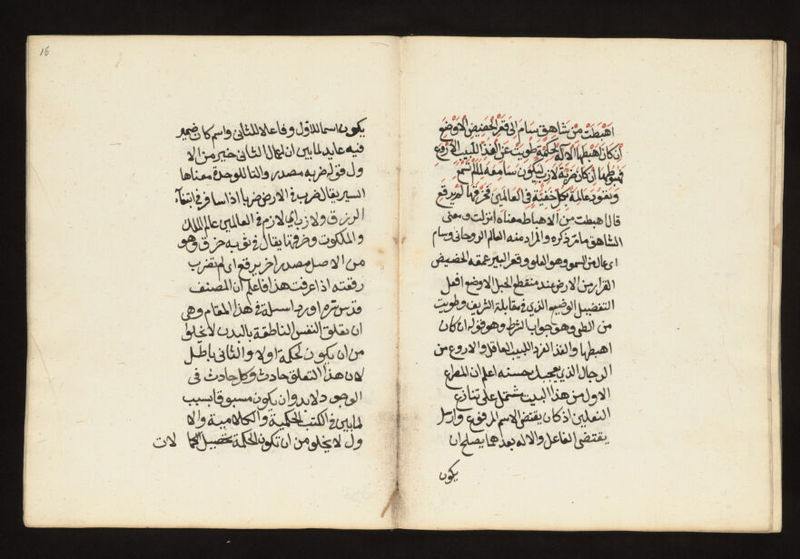 اهبطت من شاهق سام الى قعر الحضيض الاوضع
ان كان اهبطها الاله لحكمة طويت عن الفذ اللبيب الاروع
فهبوطها ان كان ضربة لازب لتكون سامعة لما لم تسمع
وتعود عالمة بكل خفية في العالمين فخرقها لم يرقع
قال اهبطت من الاهباط معناه انزلت ومعنى
الشاهق مامر ذكره والمراد منه العالم الروحاني وسام
اي عال من السمو وهو العلو وقعر البير عمقه الحضيض
القرار من الارض عند منقطع الجبل الاوضع افعل
التفضيل الوضيع الذي في مقابلة الشريف وطويت
من الطي وهو جواب الشرط وهو قوله ان كان
اهبطها والفذ الفرد اللبيب العاقل والاروع من
الرجال الذي يعجبك حسنه اعلم ان المصراع
الاول من هذا البيت مشتمل على تنازع
الفعلين اذ كان يقتضي الاسم المرفوع وارسل
يقتضي الفاعل والاله بعدهما يصلح ان
يكون
16
يكون اسما للاول وفاعلا للثاني واسم كان ضمير
فيه عايد لما بين ان اعمال الثاني خير من الا
ول قوله ضربه مصدر والتا للوحدة معناها
السير يقال ضرب في الارض ضربا اذا سافر في ابتغاء
الرزق ولازب اي لازم في العالمين عالم الملك
والملكوت وخرقها يقال في ثوبه خرق وهو
من الاصل مصدر اخر يرقع اي لم تضرب
رقعته اذا عرفت هذا فاعلم ان المصنف
قدس سره اورد اسئلة في هذا المقام وهي
ان تعلق النفس الناطقة بالبدن لا يخلوا
من ان يكون لحكمة اولا والثاني باطل
لان هذا التعلق حادث وكل حادث في
الوجود لا بد وان يكون مسبوقا بسبب
لما بين في الكتب الحكمية والكلامية والا
ول لا يخلو من ان تكون الحكمة تحصيل الكما لات